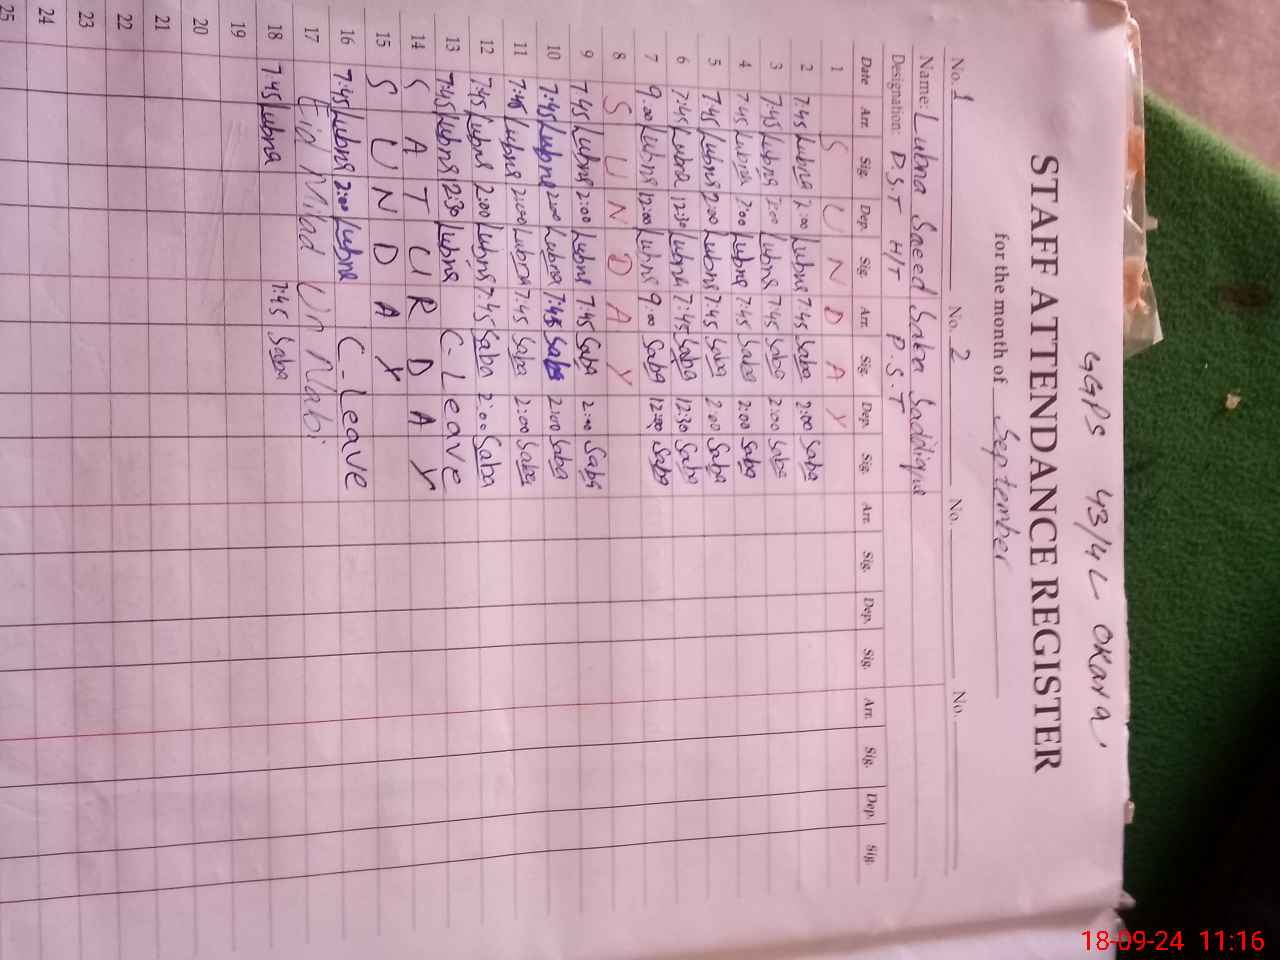 GGPS 43/4L Okara
STAFF ATTENDANCE REGISTER
for the month of September
No. 1 No. 2 No. No.
Name: Lubna Saeed Saba Saddique
Designation: P.S.T H/T P.S.T
Date Arr. Sig. Dep. Sig. Arr. Sig. Dep. Sig. Arr. Sig. Dep. Sig. Arr. Sig. Dep. Sig.
1 S U N D A Y
2 7:45 Lubna 2:00 Lubna 7:45 Saba 2:00 Saba
3 7:45 Lubna 2:00 Lubna 7:45 Saba 2:00 Saba
4 7:45 Lubna 2:00 Lubna 7:45 Saba 2:00 Saba
5 7:45 Lubna 2:00 Lubna 7:45 Saba 2:00 Saba
6 7:45 Lubna 12:30 Lubna 7:45 Saba 12:30 Saba
7 9:00 Lubna 12:00 Lubna 9:00 Saba 12:00 Saba
8 S U N D A Y
9 7:45 Lubna 2:00 Lubna 7:45 Saba 2:00 Saba
10 7:45 Lubna 2:00 Lubna 7:45 Saba 2:00 Saba
11 7:45 Lubna 2:00 Lubna 7:45 Saba 2:00 Saba
12 7:45 Lubna 2:00 Lubna 7:45 Saba 2:00 Saba
13 7:45 Lubna 2:30 Lubna C-Leave
14 S A T U R D A Y
15 S U N D A Y
16 7:45 Lubna 2:00 Lubna C-Leave
17 Eid Milad Un Nabi
18 7:45 Lubna 7:45 Saba
19
20
21
22
23
24
25
18-09-24 11:16